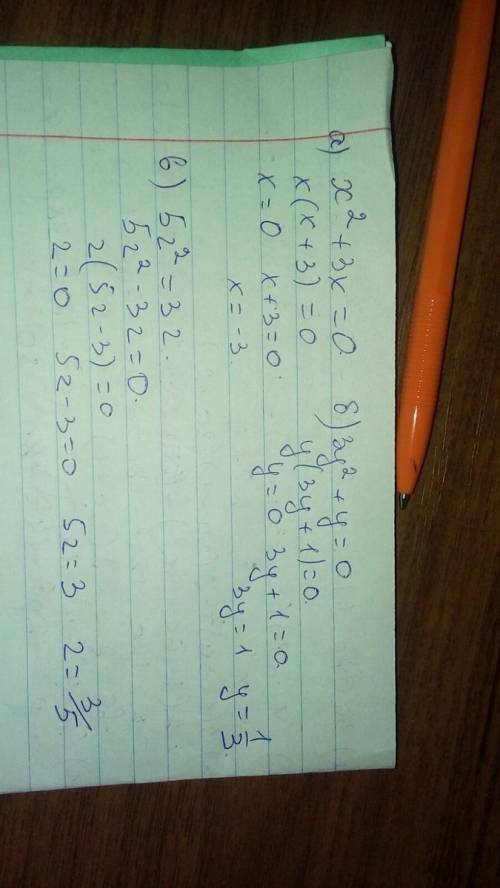 а) x² + 3x = 0
x(x + 3) = 0
x = 0 x + 3 = 0.
x = -3.
б) 3y² + y = 0
y(3y + 1) = 0.
y = 0 3y + 1 = 0
3y = 1 y = 1/3.
в) 5z² = 3z.
5z² - 3z = 0.
z(5z - 3) = 0
z = 0 5z - 3 = 0 5z = 3 z = 3/5